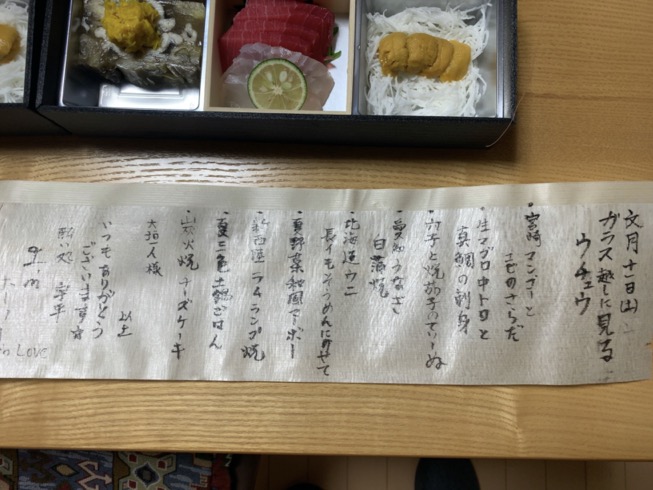 文月十日(山)
ガラス越しに見る
ウチュウ
・宮崎マンゴーと
エビのさらだ
・生マグロ中トロと
真鯛の刺身
・穴子と焼茄子のてぃーぬ
・愛知うなぎ
白蒲焼
・北海道ウニ
長イモそうめんにのせて
・夏野菜和風マーボー
・新西蘭ラムランプ焼
・夏三色土鍋ごはん
・炭火焼チーズケーキ
以上
様
いつもありがとう
ございます
酔い処
LOVE